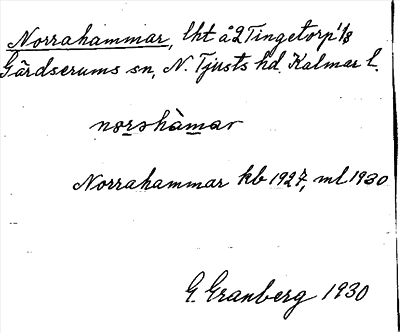 Norrahammar, lht å 2 Tingetorp 1/8
Gärdserums sn, N. Tjusts hd. Kalmar l.
norshàmar
Norrahammar kb 1927, ml 1930
G. Granberg 1930